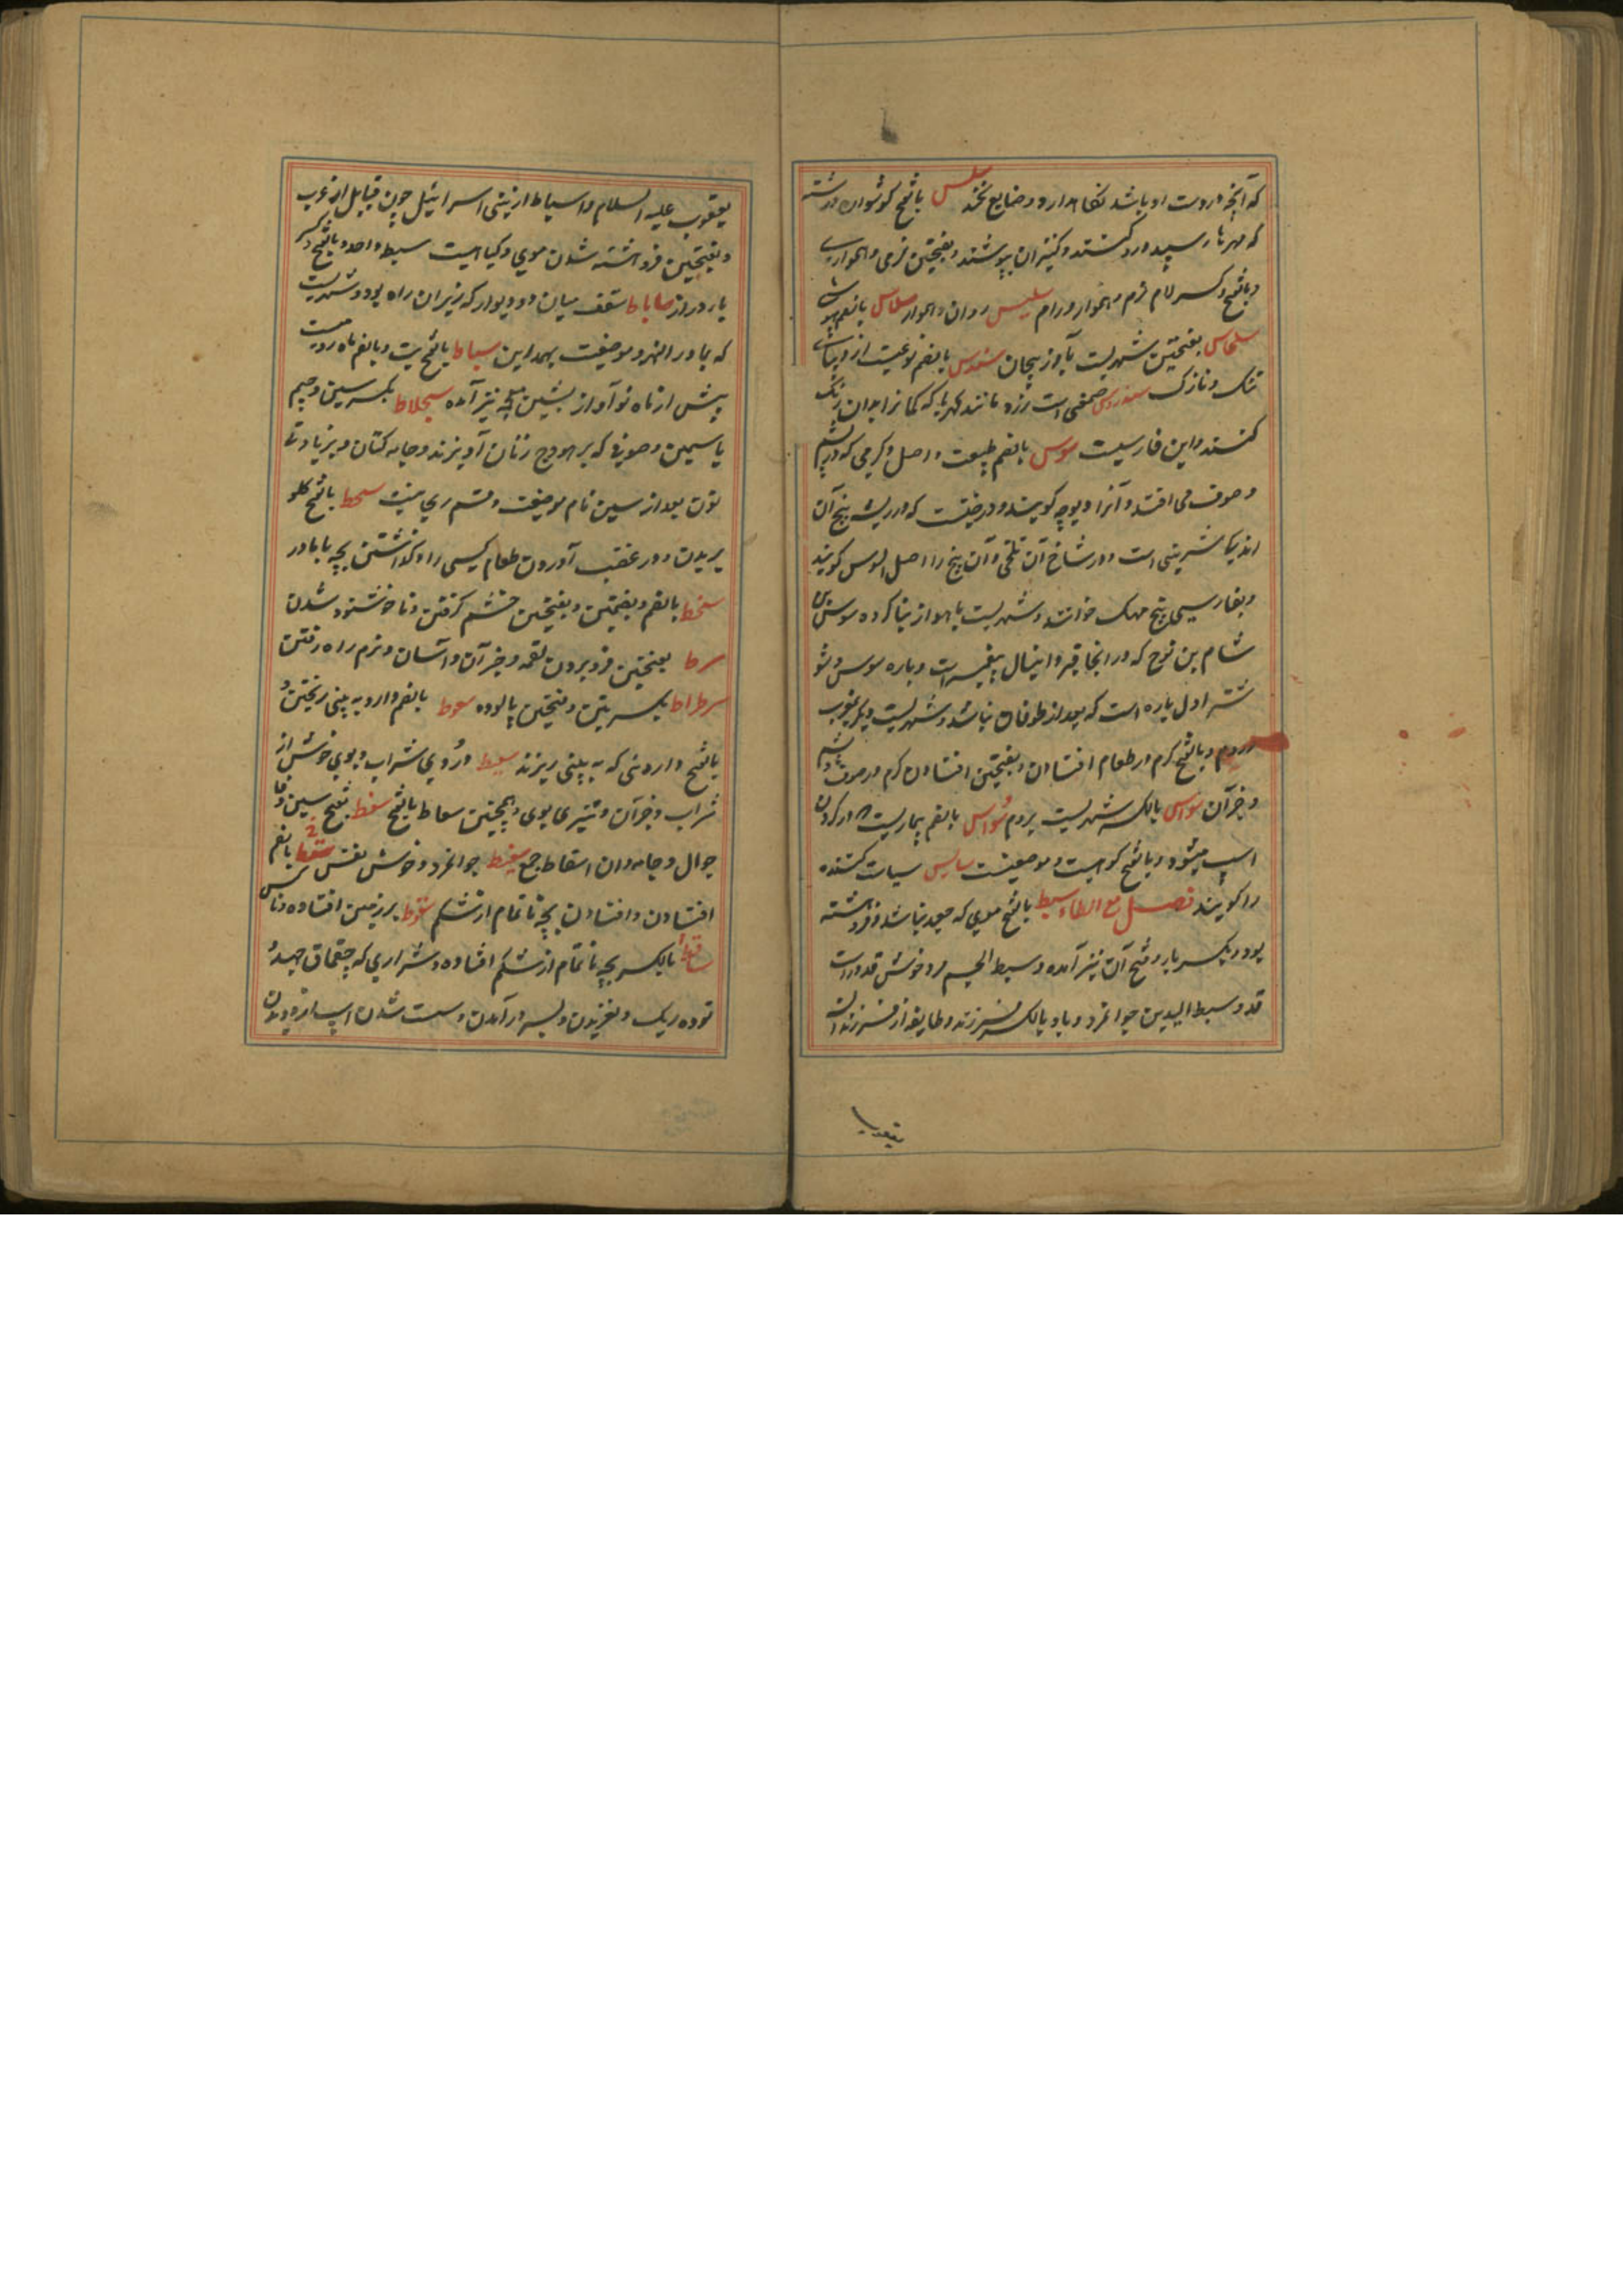 که آنچه در دست او باشد نگاهدارد و ضایع نکند سلس بالفتح گوشواره و رشته
که مهرهاء سپید درو کشند و کنیزان پوشند و بفتحتین نرمی و همواری
و بالفتح و کسر لام نرم و هموار و رام سلیس روان و هموار سلاس بالضم بیهوشی
سلماس بفتحتین شهریست بآذربیجان سندس بالضم نوعیست از دیبای
تنک و نازک سندروس صمغی است زرد مانند کهربا که کمانرا بدان رنگ
کنند و این فارسیست سوس بالضم طبیعت و اصل و کرمی که در پشم
و صوف می افتد و آنرا دیوچه گویند و درختیست که در ریشه بیخ آن
اندک شیرینی است و در شاخ آن تلخی و آن بیخ را اصل السوس گویند
و بفارسی بیخ مهک خوانند و شهریست باهواز بنا کرده سوس بن
شام بن نوح که در آنجا قبر دانیال پیغمبرست و باره سوس و شو
شتر اول باره است که بعد از طوفان بنا شد و شهریست دیگر بمغرب
و روم و بالفتح کرم در طعام افتادن و بفتحتین افتادن کرم در صوف و پشم
و جز آن سواس بالکسر شهریست بروم سُواس بالضم بیماریست که در گردن
اسپ میشود و بالفتح کوهیست و موضعیست سایس سیاست کننده
را گویند فصل مع الطاء سبط بالفتح مویی که جعد نباشد و فروهشته
بود و بکسر با و فتح آن نیز آمده و سبط الجسم مرد خوش قد و راست
قد و سبط الیدین جوانمرد و با و بالکسر فرزند و طایفه از فرزندان
یعقوب
یعقوب علیه السلام و اسباط از بنی اسرائیل چون قبایل از عرب
و بفتحتین فروهشته شدن موی و گیاهیست سبط واحد و بالفتح و کسر
با دراز ساباط سقف میان دو دیوار که زیر آن راه بود و شهریست
که بماوراءالنهر و موضعیست بمداین سباط بالفتح تب و بالضم ماه رومیست
پیش از ماه نو آذار بشین معجمه نیز آمده سجلاط بکسر سین و جیم
یاسمین و صوفی که بر هودج زنان آویزند و جامه کتان و بزیادتی
نون بعد از سین نام موضعیست و قسم ریاحینست سحط بالفتح گلو
بریدن و در عقب آوردن طعام کسی را و گذاشتن بچه با مادر
سخط بالضم و بضمتین و بفتحتین خشم گرفتن و ناخوشنود شدن
سرط بفتحتین فرو بردن لقمه و جز آن و آسان و نرم راه رفتن
سرطراط بکسرتین و فتحتین پالوده سعوط بالضم دارو به بینی ریختن و
بالفتح داروئی که به بینی ریزند سعیط دُردی شراب و بوی خوش از
شراب و جز آن و تیزی بوی و همچنین سعاط بالفتح سفط بفتح سین و فا
جوال و جامه‌دان اسفاط جمع سفیط جوانمرد و خوش نفس سقط بالضم
افتادن و افتادن بچه ناتمام از شکم سقوط بر زمین افتاده و ناکس
ساقط بالکسر بچه ناتمام از شکم افتاده و شراری که چقماق جهد
توده ریک و لغزیدن و بسر در آمدن و سست شدن اسپ از دویدن